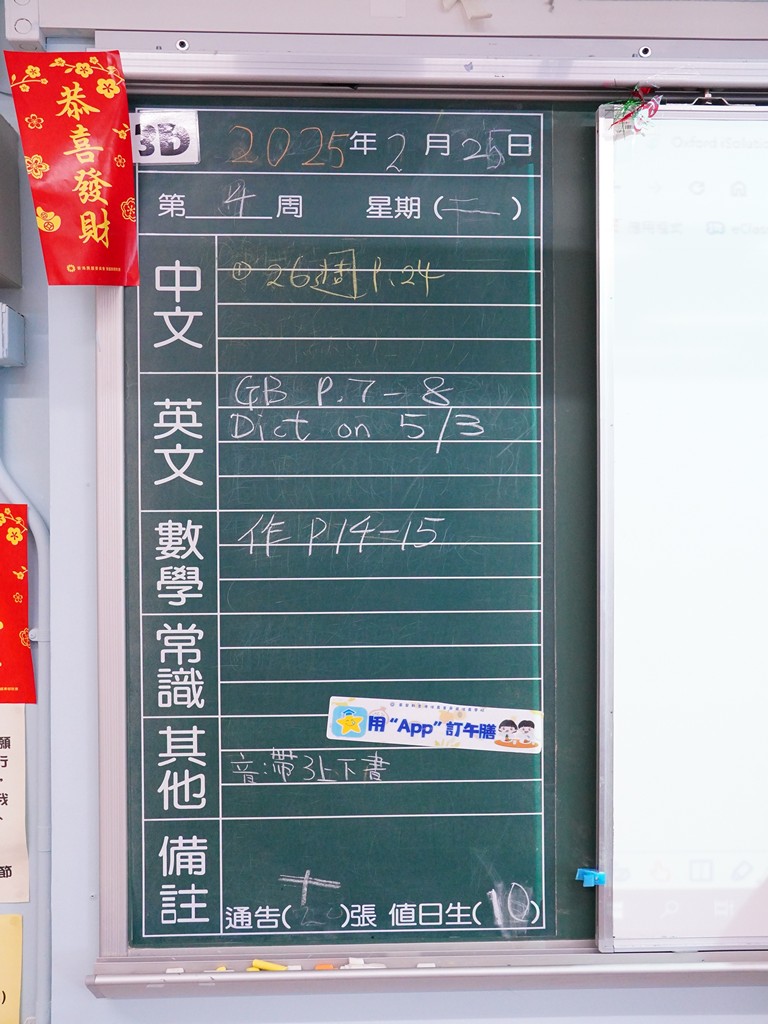 恭喜發財
3B 2025年2月25日
第4周 星期(二)
中文
① 26週 P.24
英文
GB P.7-8
Dict on 5/3
數學
作 P14-15
常識
用“App”訂午膳
其他
音:帶3上下書
備註
通告( )張 值日生(10)
願
行
我
節